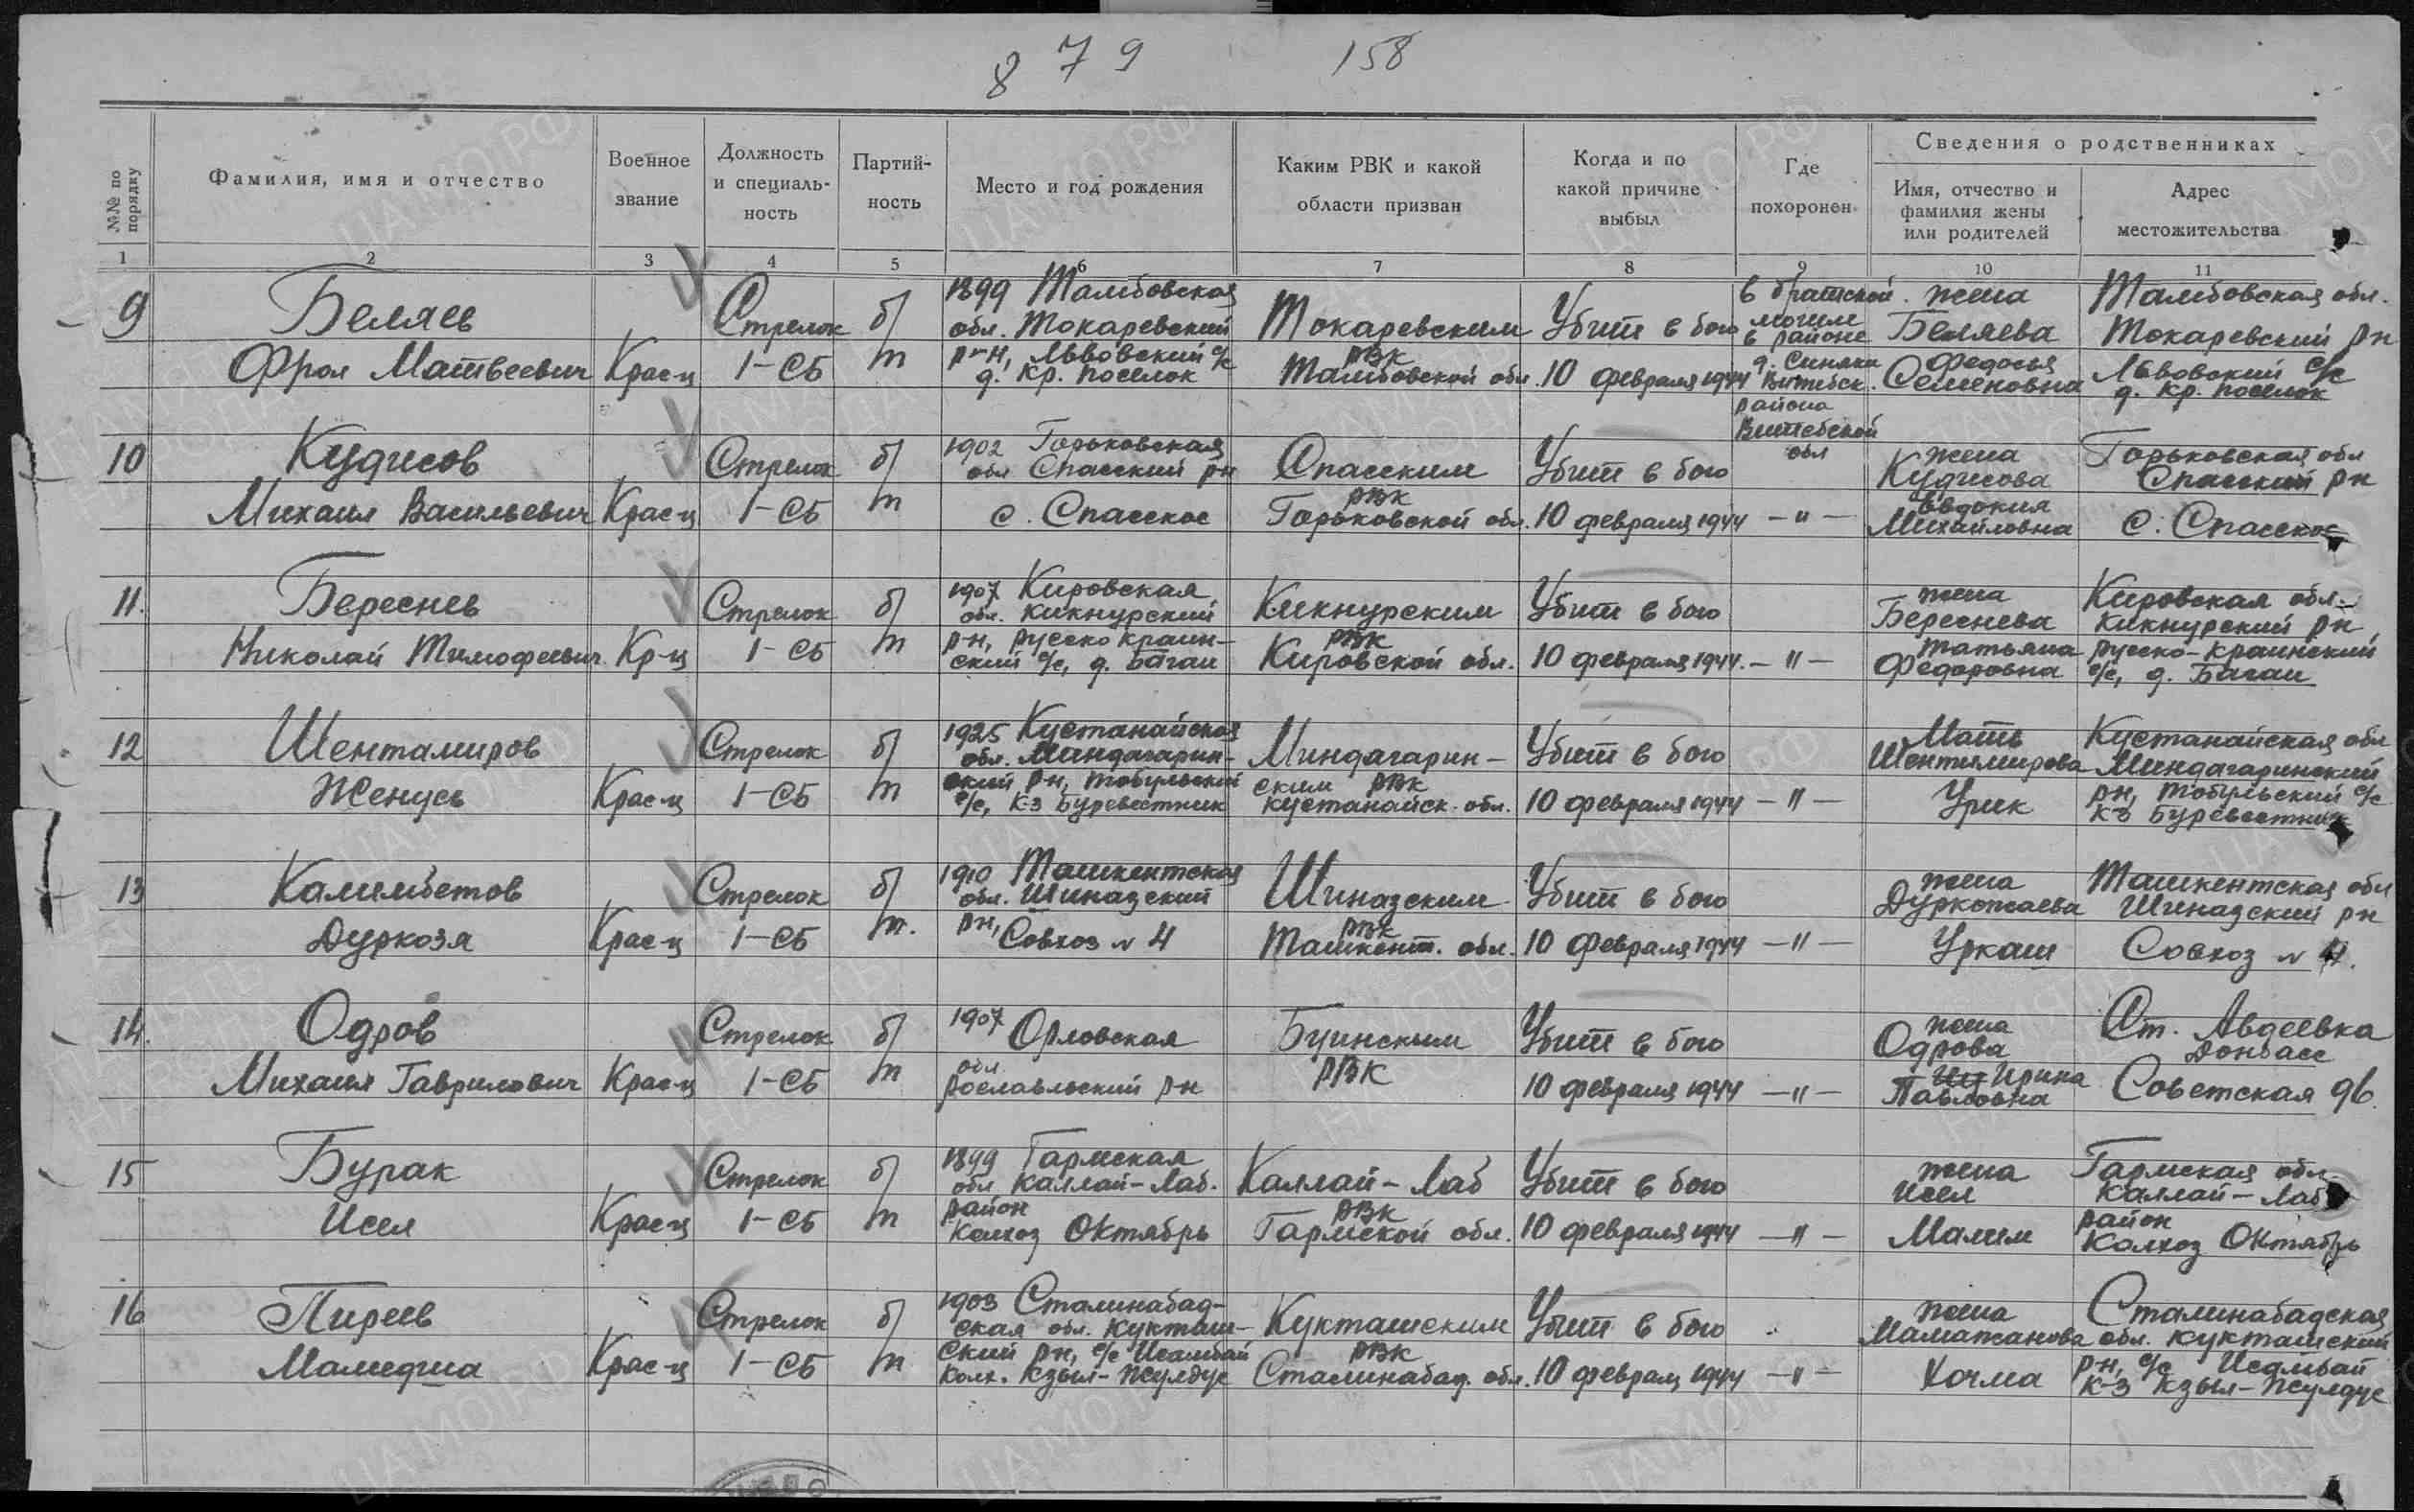 879 158
№№ по порядку
Фамилия, имя и отчество
Военное звание
Должность и специаль-ность
Партий-ность
Место и год рождения
Каким РВК и какой области призван
Когда и по какой причине выбыл
Где похоронен
Сведения о родственниках
Имя, отчество и фамилия жены или родителей
Адрес местожительства
1 2 3 4 5 6 7 8 9 10 11
9
Беляев
Фрол Матвеевич
Крас-ц
Стрелок
1-СБ
б/
п
1899 Тамбовская
обл. Токаревский
р-н, Львовский с/с
д. Кр. поселок
Токаревским
РВК
Тамбовской обл.
Убит в бою
10 февраля 1944
в братской
могиле
в районе
д. Синяки
Витебск.
района
Витебской
обл
жена
Беляева
Федосья
Семеновна
Тамбовская обл.
Токаревский рн
Львовский с/с
д. Кр. поселок
10
Кудисов
Михаил Васильевич
Крас-ц
Стрелок
1-СБ
б/
п
1902 Горьковская
обл Спасский рн
с. Спасское
Спасским
РВК
Горьковской обл.
Убит в бою
10 февраля 1944
-"-
жена
Кудисова
Евдокия
Михайловна
Горьковская обл
Спасский рн
с. Спасское
11.
Береснев
Николай Тимофеевич
Кр-ц
Стрелок
1-СБ
б/
п
1907 Кировская
обл. Кикнурский
р-н, русско краин-
ский с/с, д. Багаи
Кикнурским
РВК
Кировской обл.
Убит в бою
10 февраля 1944.
-"-
жена
Береснева
Татьяна
Федоровна
Кировская обл.
Кикнурский рн,
русско-краинский
с/с, д. Багаи
12
Шентамиров
Женусь
Крас-ц
Стрелок
1-СБ
б/
п
1925 Кустанайская
обл. Миндагарин-
ский рн, Тобульский
с/с, к-з Буревестник
Миндагарин-
ским РВК
кустанайск. обл.
Убит в бою
10 февраля 1944
-"-
Мать
Шентимирова
Урик
Кустанайская обл
Миндагаринский
рн, Тобульский с/с
к-з Буревестник
13
Калимбетов
Дуркозя
Крас-ц
Стрелок
1-СБ
б/
п.
1910 Ташкентская
обл. Шиназский
рн,
Совхоз N 4
Шиназским
РВК
Ташкент. обл.
Убит в бою
10 февраля 1944
-"-
жена
Дуркожаева
Уркаш
Ташкентская обл
Шиназский рн
Совхоз N 4.
14.
Одров
Михаил Гаврилович
Крас-ц
Стрелок
1-СБ
б/
п
1907 Орловская
обл
рославльский рн
Буинским
РВК
Убит в бою
10 февраля 1944
-"-
жена
Одрова
Ирина
Павловна
Ст. Авдеевка
Донбасс
Советская 96.
15
Бурак
Исел
Крас-ц
Стрелок
1-СБ
б/
п
1899 Гармская
обл Каллай-Лаб.
район
Колхоз Октябрь
Каллай-Лаб
РВК
Гармской обл.
Убит в бою
10 февраля 1944
-"-
жена
Исел
Малим
Гармская обл
Каллай-Лаб
район
Колхоз Октябрь
16
Пиреев
Мамедша
Крас-ц
Стрелок
1-СБ
б/
п
1903 Сталинабад-
ская обл. Кукташ-
ский рн, с/с Исамбай
колх. Кзыл-Жулдус
Кукташским
РВК
Сталинабад. обл.
Убит в бою
10 феврал 1944
-"-
жена
Маматжанова
Хочма
Сталинабадская
обл. кукташский
рн, с/с Исамбай
к-з Кзыл-Жулдус